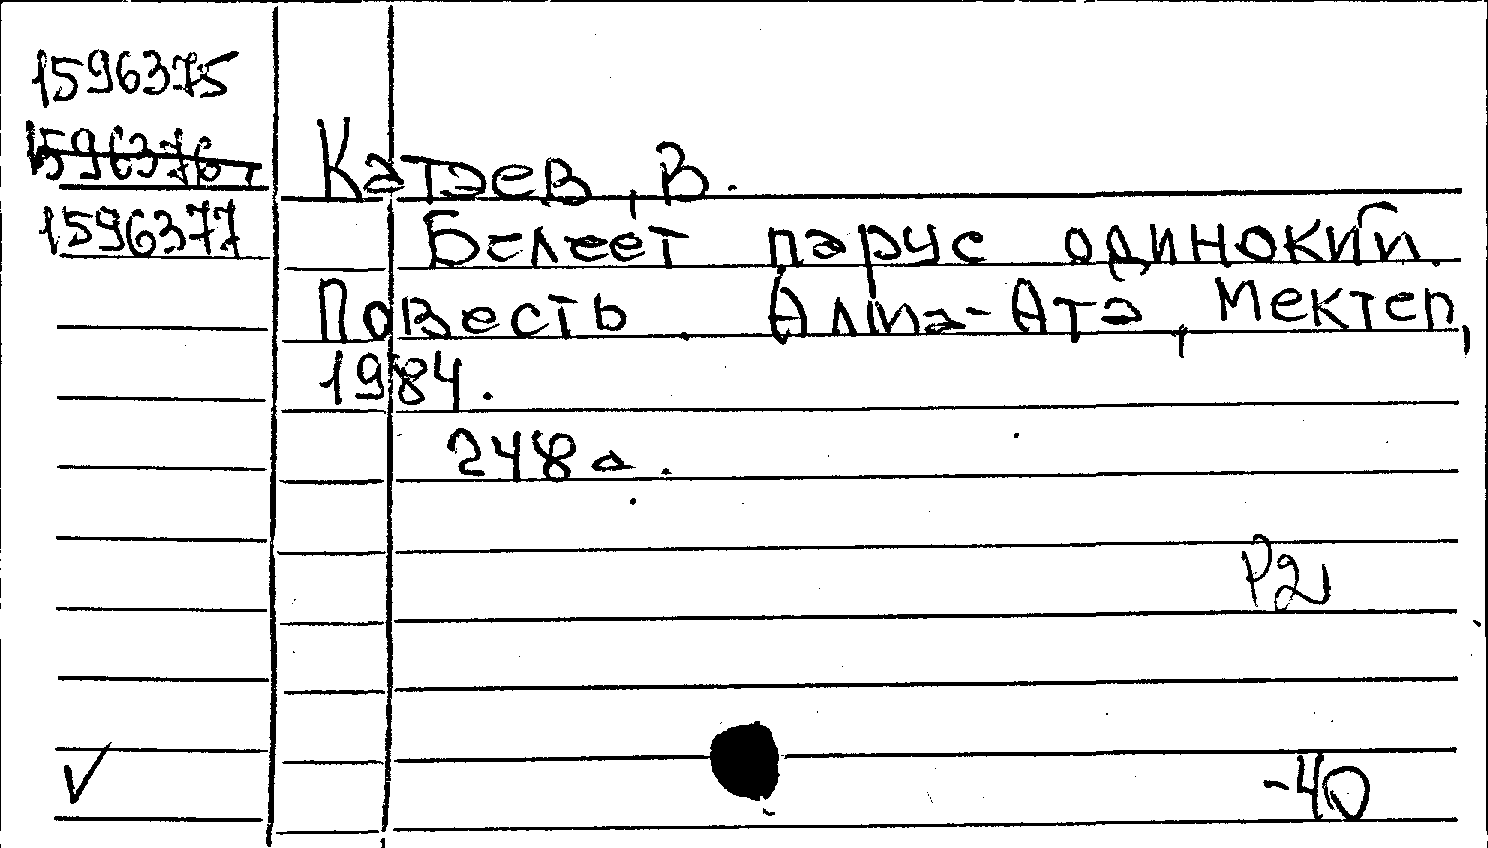 1596375
1596376
Катаев, В.
1596377
Белеет парус одинокий.
Повесть. Алма-Ата, Мектеп,
1984.
248 с.
Р2
-40